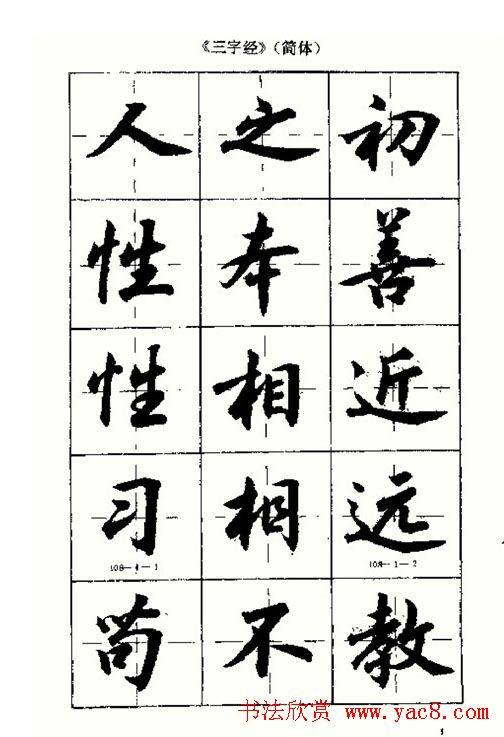 《三字经》(简体)
人之初
性本善
性相近
习相远
108—1—1
108—1—2
苟不教
书法欣赏 www.yac8.com
1